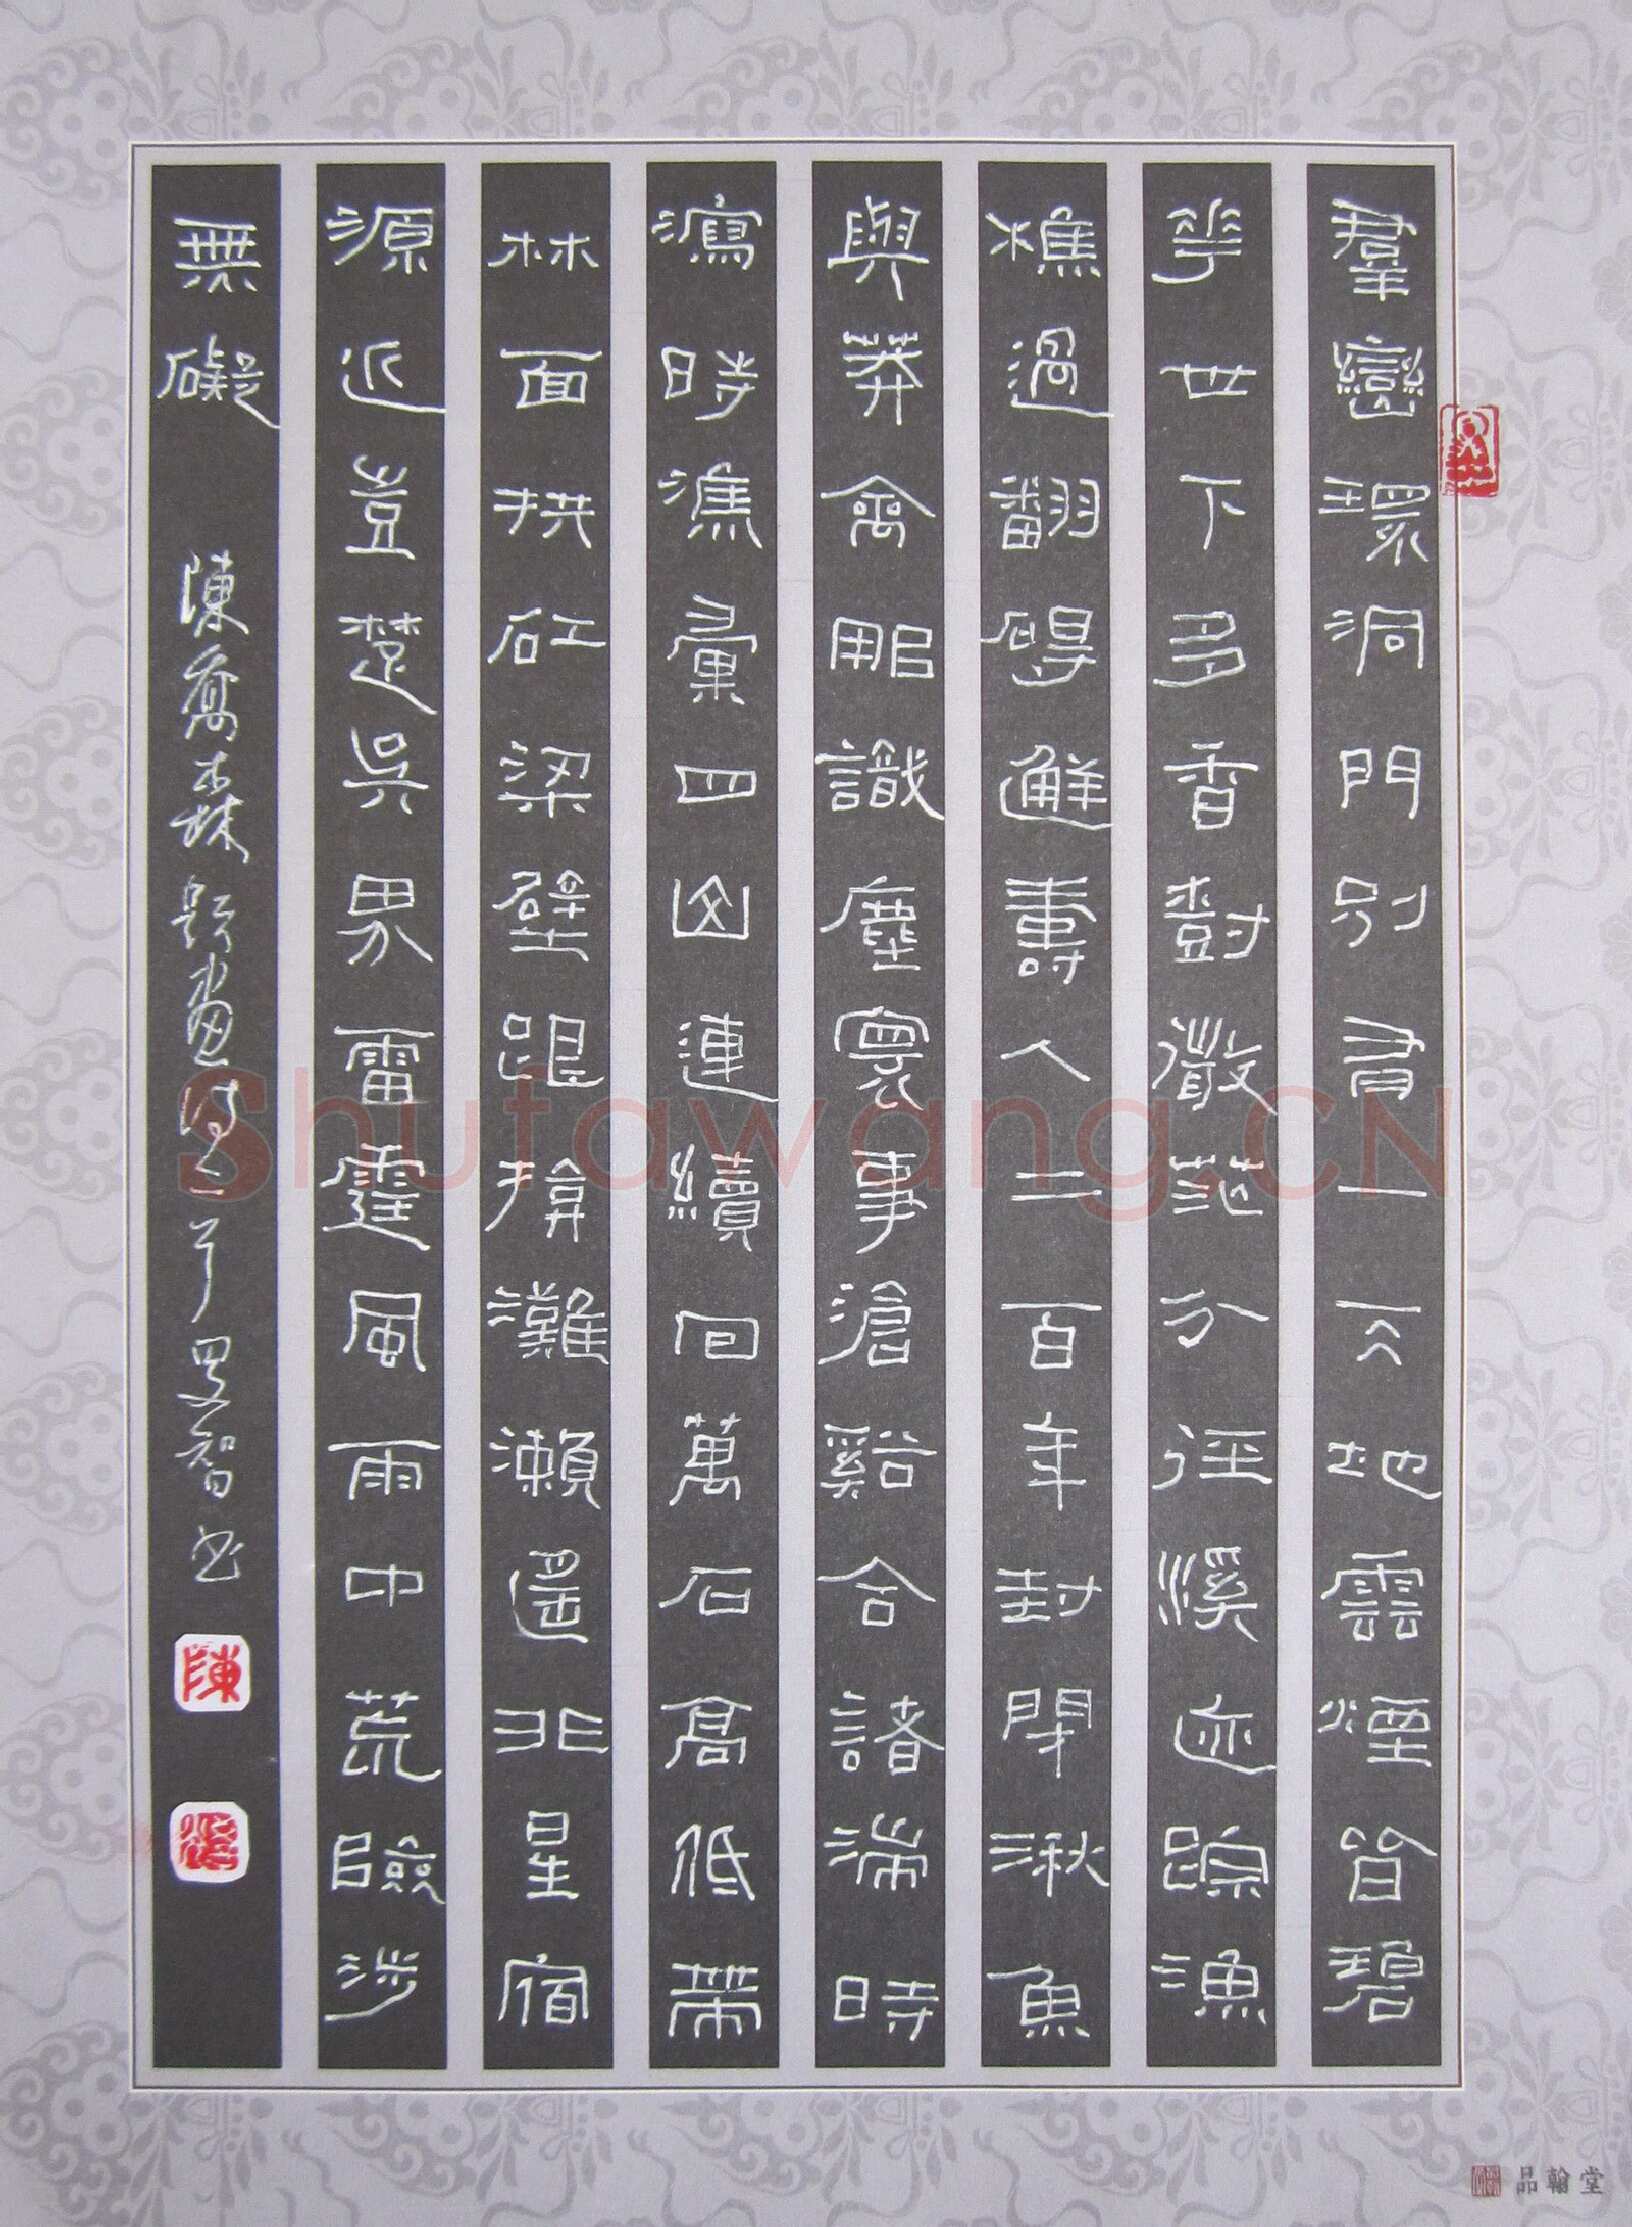 羣巒環洞門別有一天地雲煙皆碧
華世下多香樹散茫分徑溪迹踪漁
樵過翻碍避壽人二百年封閉湫魚
與莽禽那識塵寰事滄谿合諸湍時
瀉時漁彙四凶連續回萬石高低帶
林面拱矼梁壁跟揜灘瀨遥北星宿
源近豈楚吳界雷霆風雨中荒險涉
無礙 陳喬森題畫詩二首 智書
陳
Shufawang.CN
品翰堂